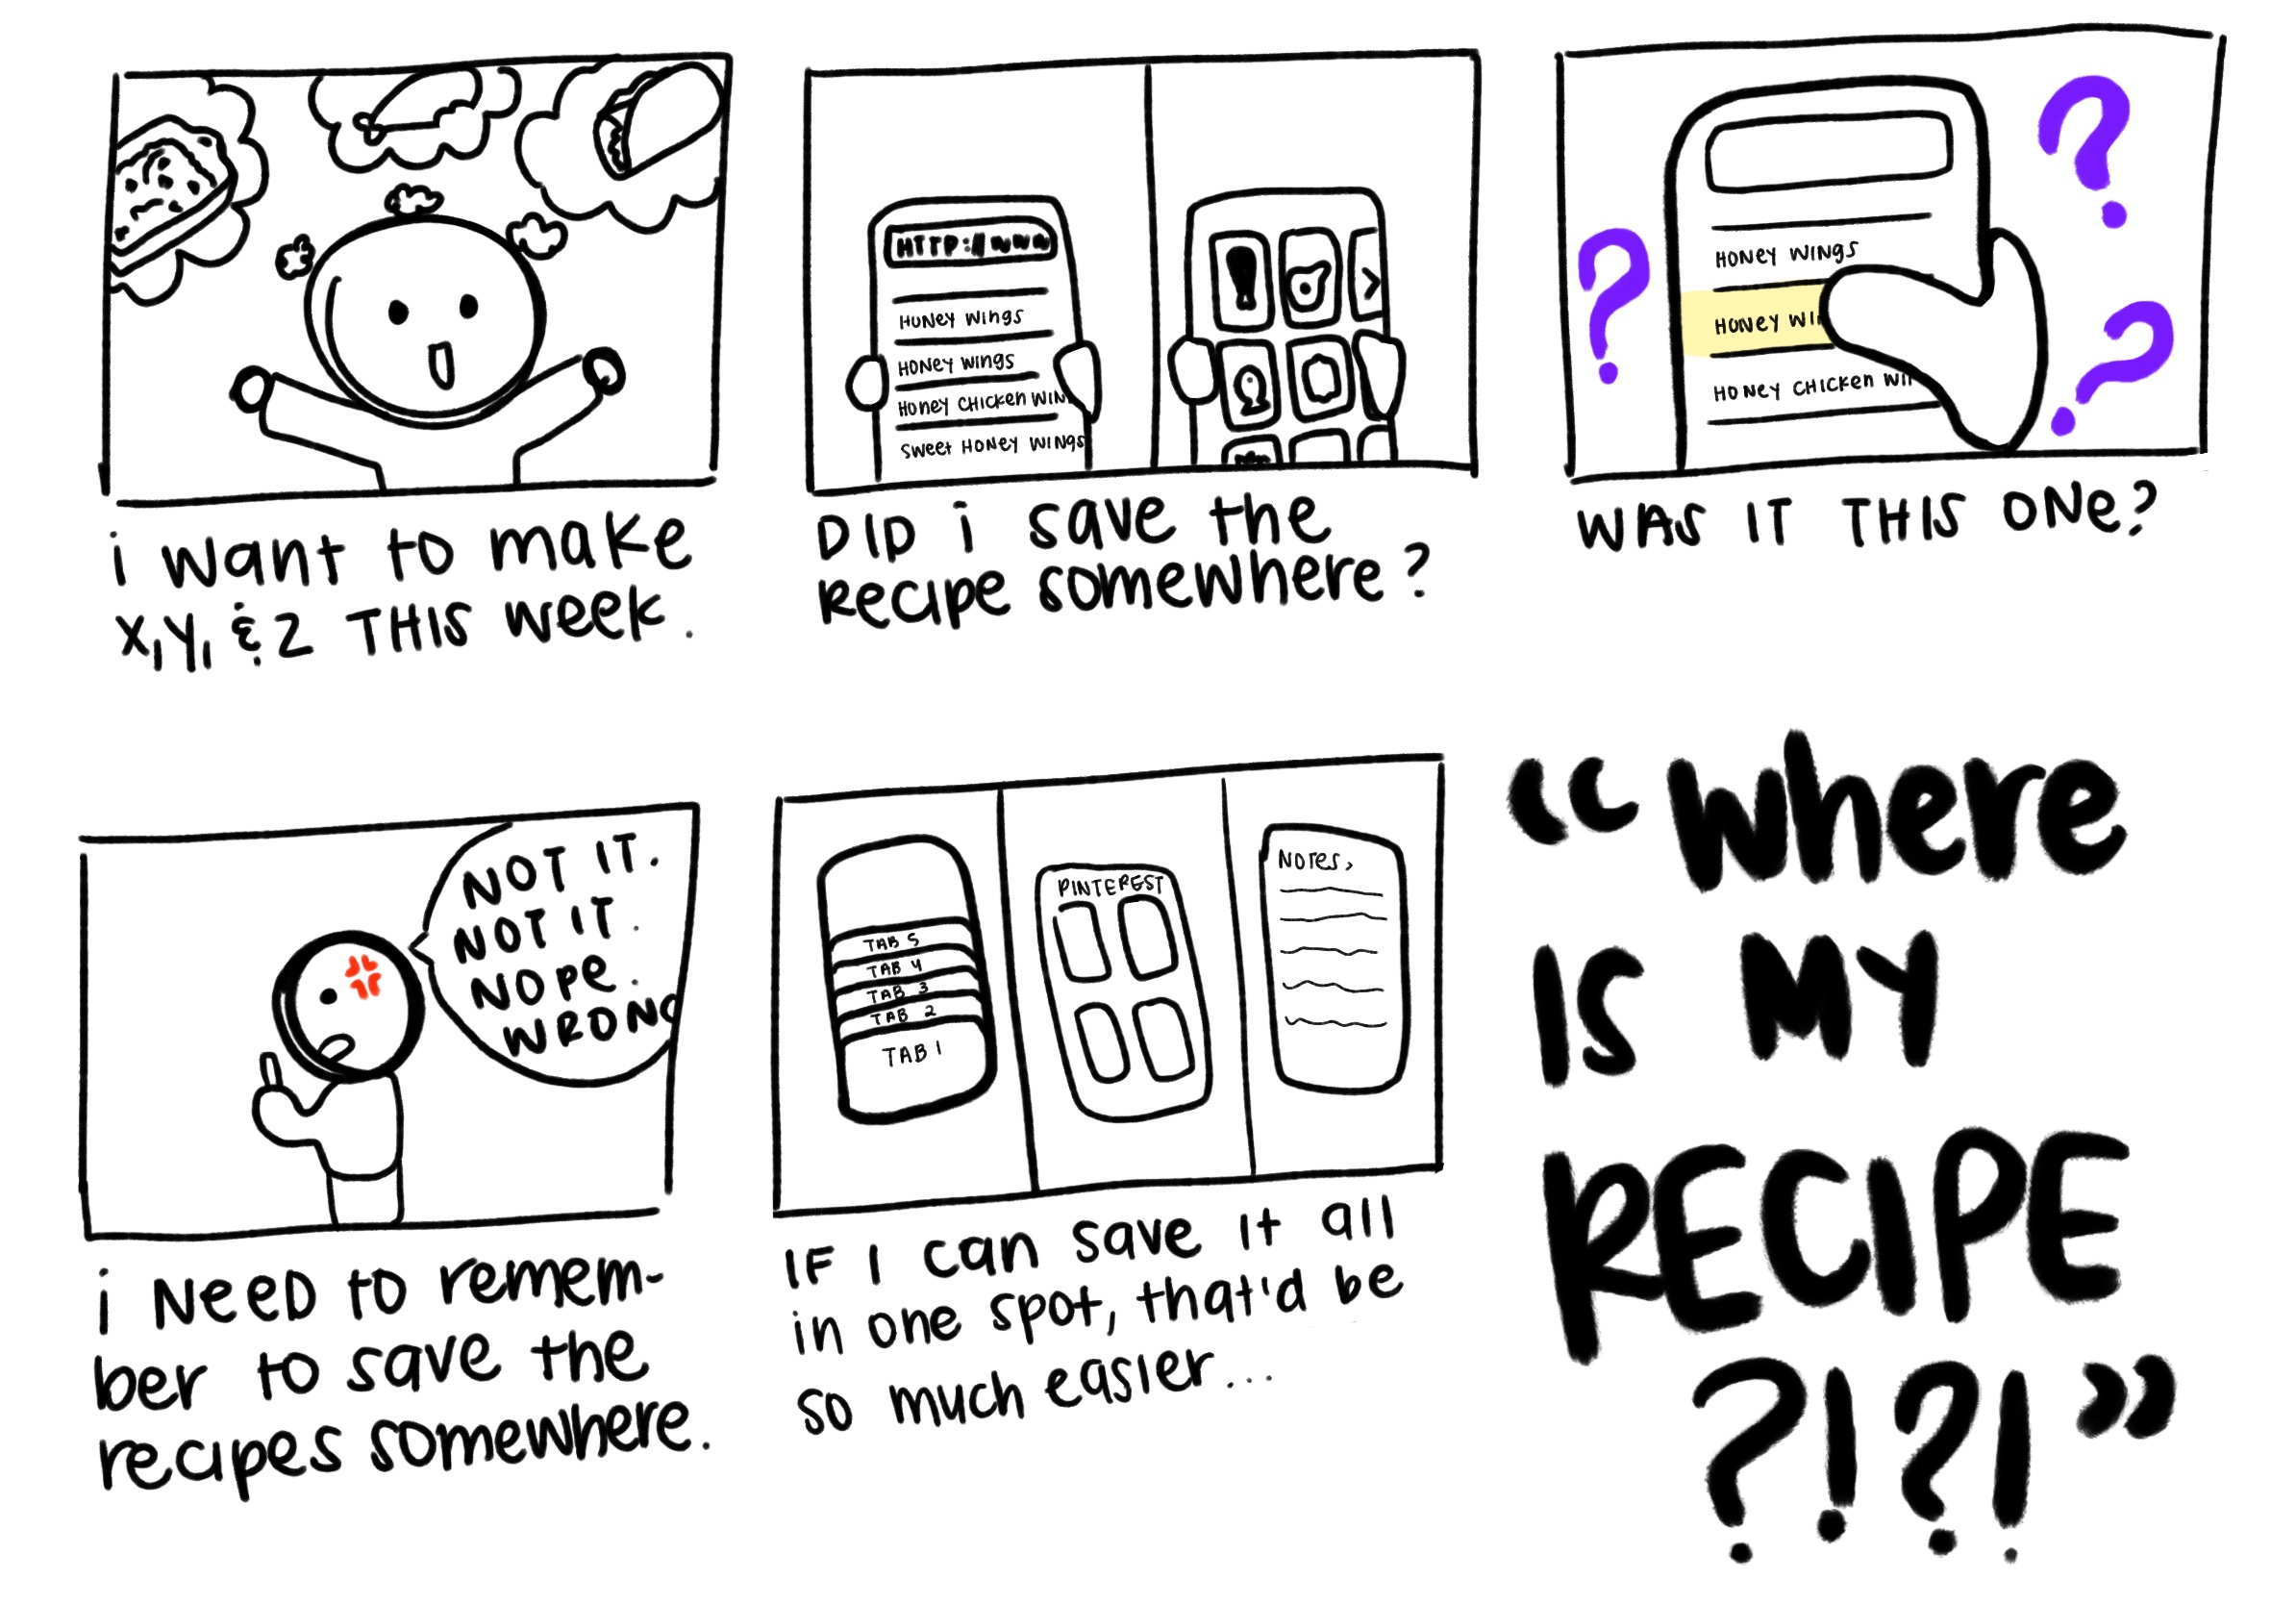 i want to make
x, y, & z THIS week.
HTTP://www
HONey wings
HONey wings
Honey CHICKen WIN
Sweet HONey WINgS
DID i save the
Recipe somewhere?
HONey WINgS
HONey WI
HONey CHICKen WI
WAS IT THIS ONe?
NOT IT.
NOT IT.
NOpe.
WRONG
i NeeD to remem-
ber to save the
recipes somewhere.
TAB 5
TAB 4
TAB 3
TAB 2
TAB 1
PINTEREST
NOTES,
IF I can save it all
in one spot, that'd be
so much easier...
"where
IS MY
RECIPE
?!?!"